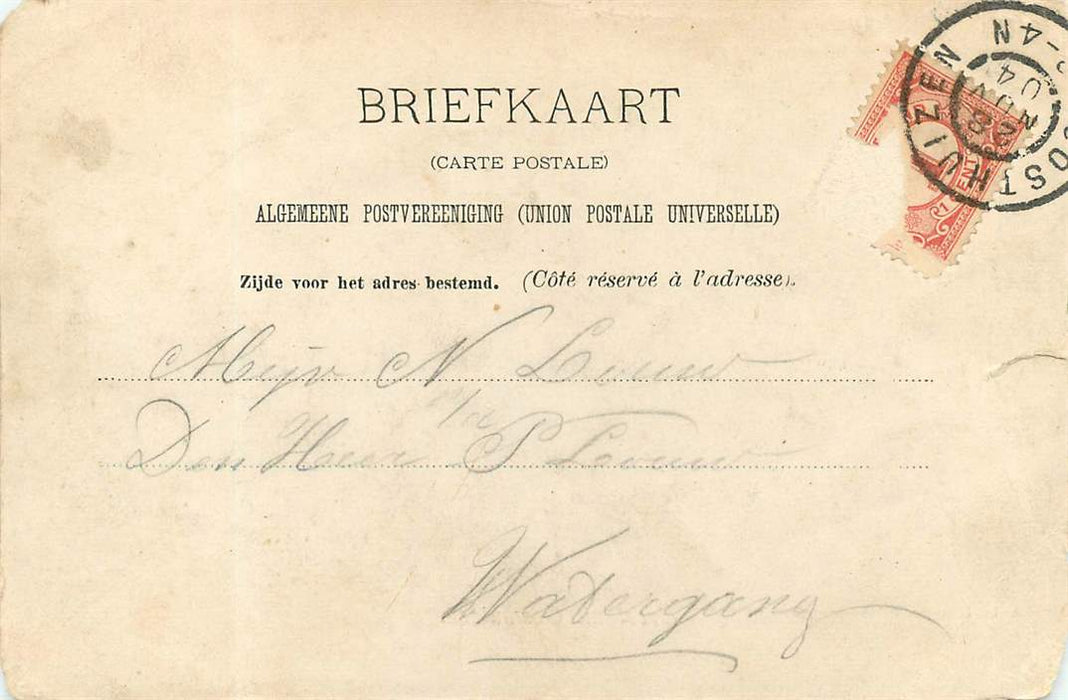 BRIEFKAART
(CARTE POSTALE)
ALGEMEENE POSTVEREENIGING (UNION POSTALE UNIVERSELLE)
Zijde voor het adres bestemd. (Côté réservé à l'adresse).
OOSTHUIZEN
28 NOV 04
-4N
1 CENT
Mejv N Louw
p/a
Den Heer P Louw
Watergang